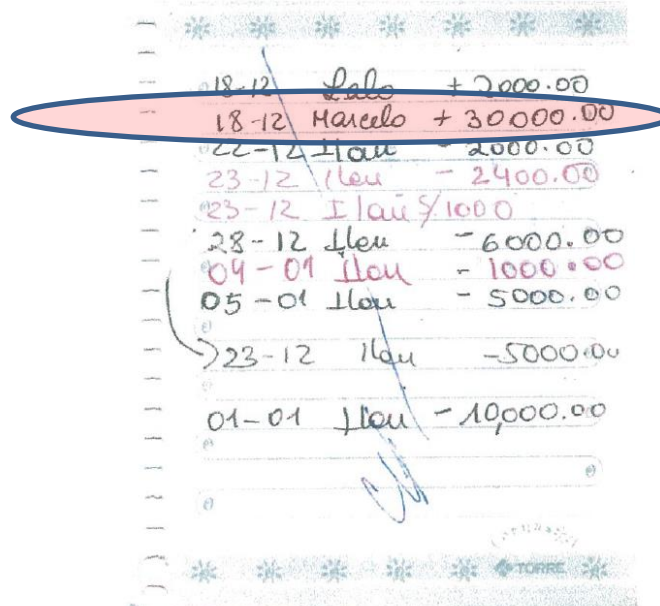 18-12 Lalo + 2000.00
18-12 Marcelo + 30000.00
22-12 Ilan - 2000.00
23-12 Ilan - 2400.00
23-12 Ilan $/1000
28-12 Ilan - 6000.00
04-01 Ilan - 1000.00
05-01 Ilan - 5000.00
23-12 Ilan -5000.00
01-01 Ilan - 10,000.00
TORRE